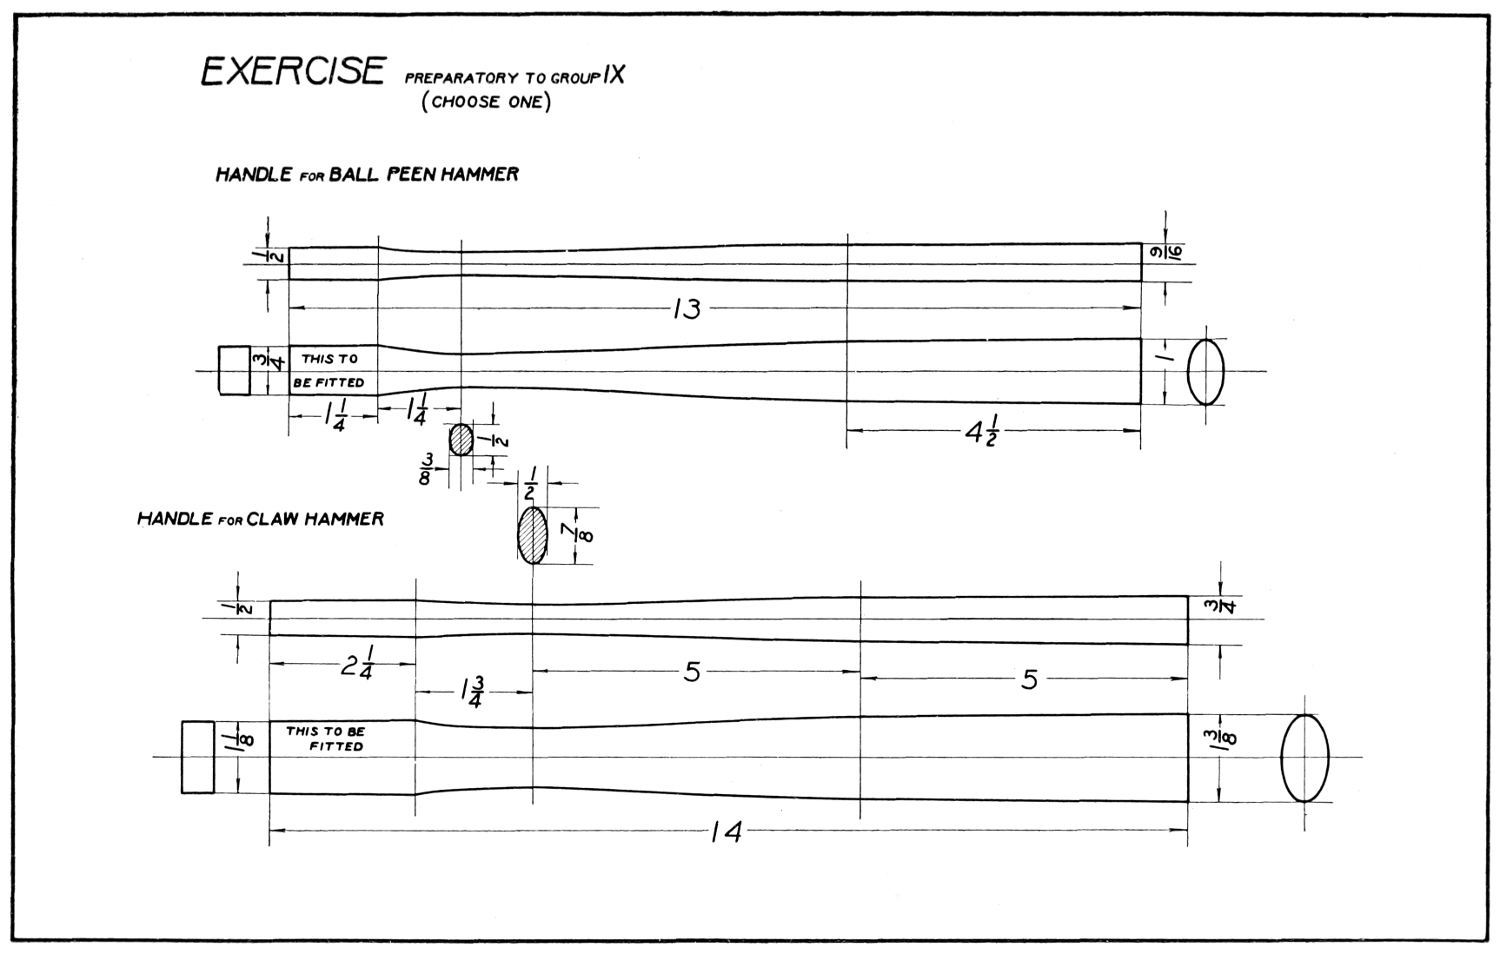 EXERCISE PREPARATORY TO GROUP IX
(CHOOSE ONE)
HANDLE FOR BALL PEEN HAMMER
1/2
9/16
13
3/4
THIS TO
BE FITTED
1
1 1/4
1 1/4
1/2
3/8
4 1/2
1/2
7/8
HANDLE FOR CLAW HAMMER
1/2
3/4
2 1/4
1 3/4
5
5
1 1/8
THIS TO BE
FITTED
1 3/8
14